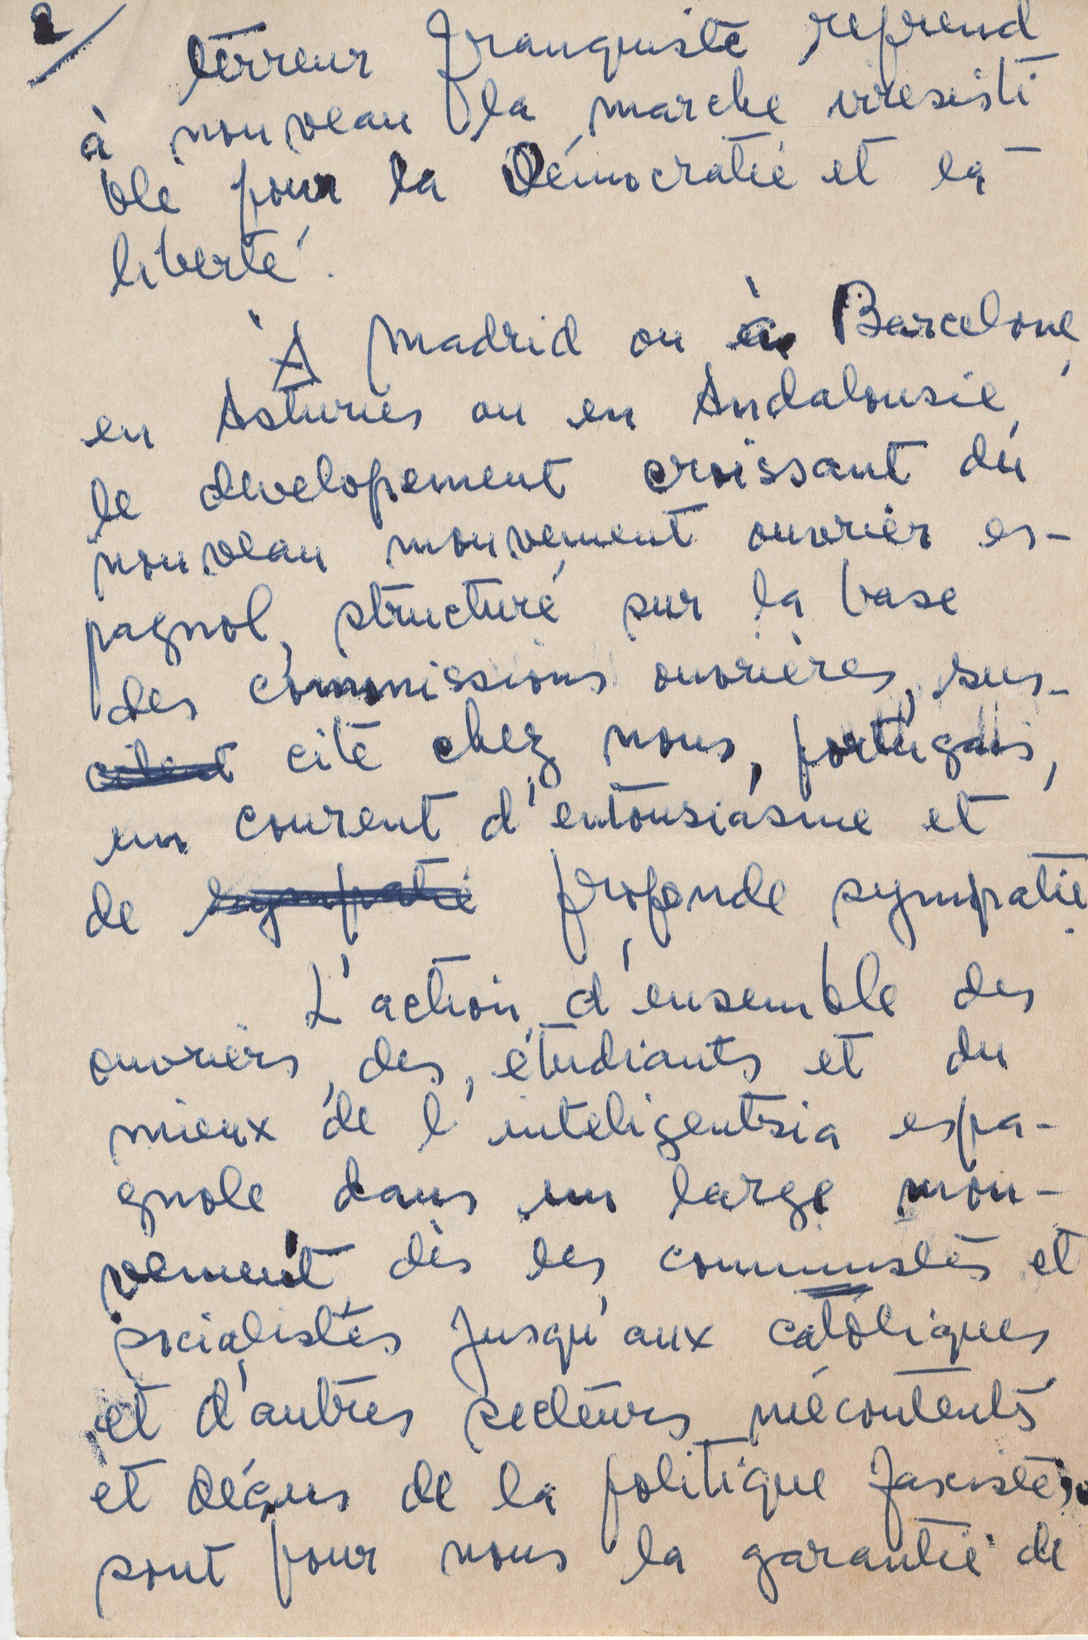 2/
terreur franquiste reprend
à nouveau la marche irresisti
ble pour la Démocratie et la
liberté.
À Madrid ou à Barcelone,
en Asturies ou en Andalousie,
le developement croissant du
nouveau mouvement ouvrier es-
pagnol, structuré sur la base
des commissions ouvrières, sus-
cite chez nous, portugais,
un courent d'entousiasme et
de sympatie profonde sympatie.
L'action d'ensemble des
ouvriers, des étudiants et du
mieux de l'inteligentsia espa-
gnole dans un large mou-
vement dès les communistes et
socialistes jusqu'aux catòliques
et d'autres secteurs mécontents
et déçus de la politique fasciste,
sont pour nous la garantie de